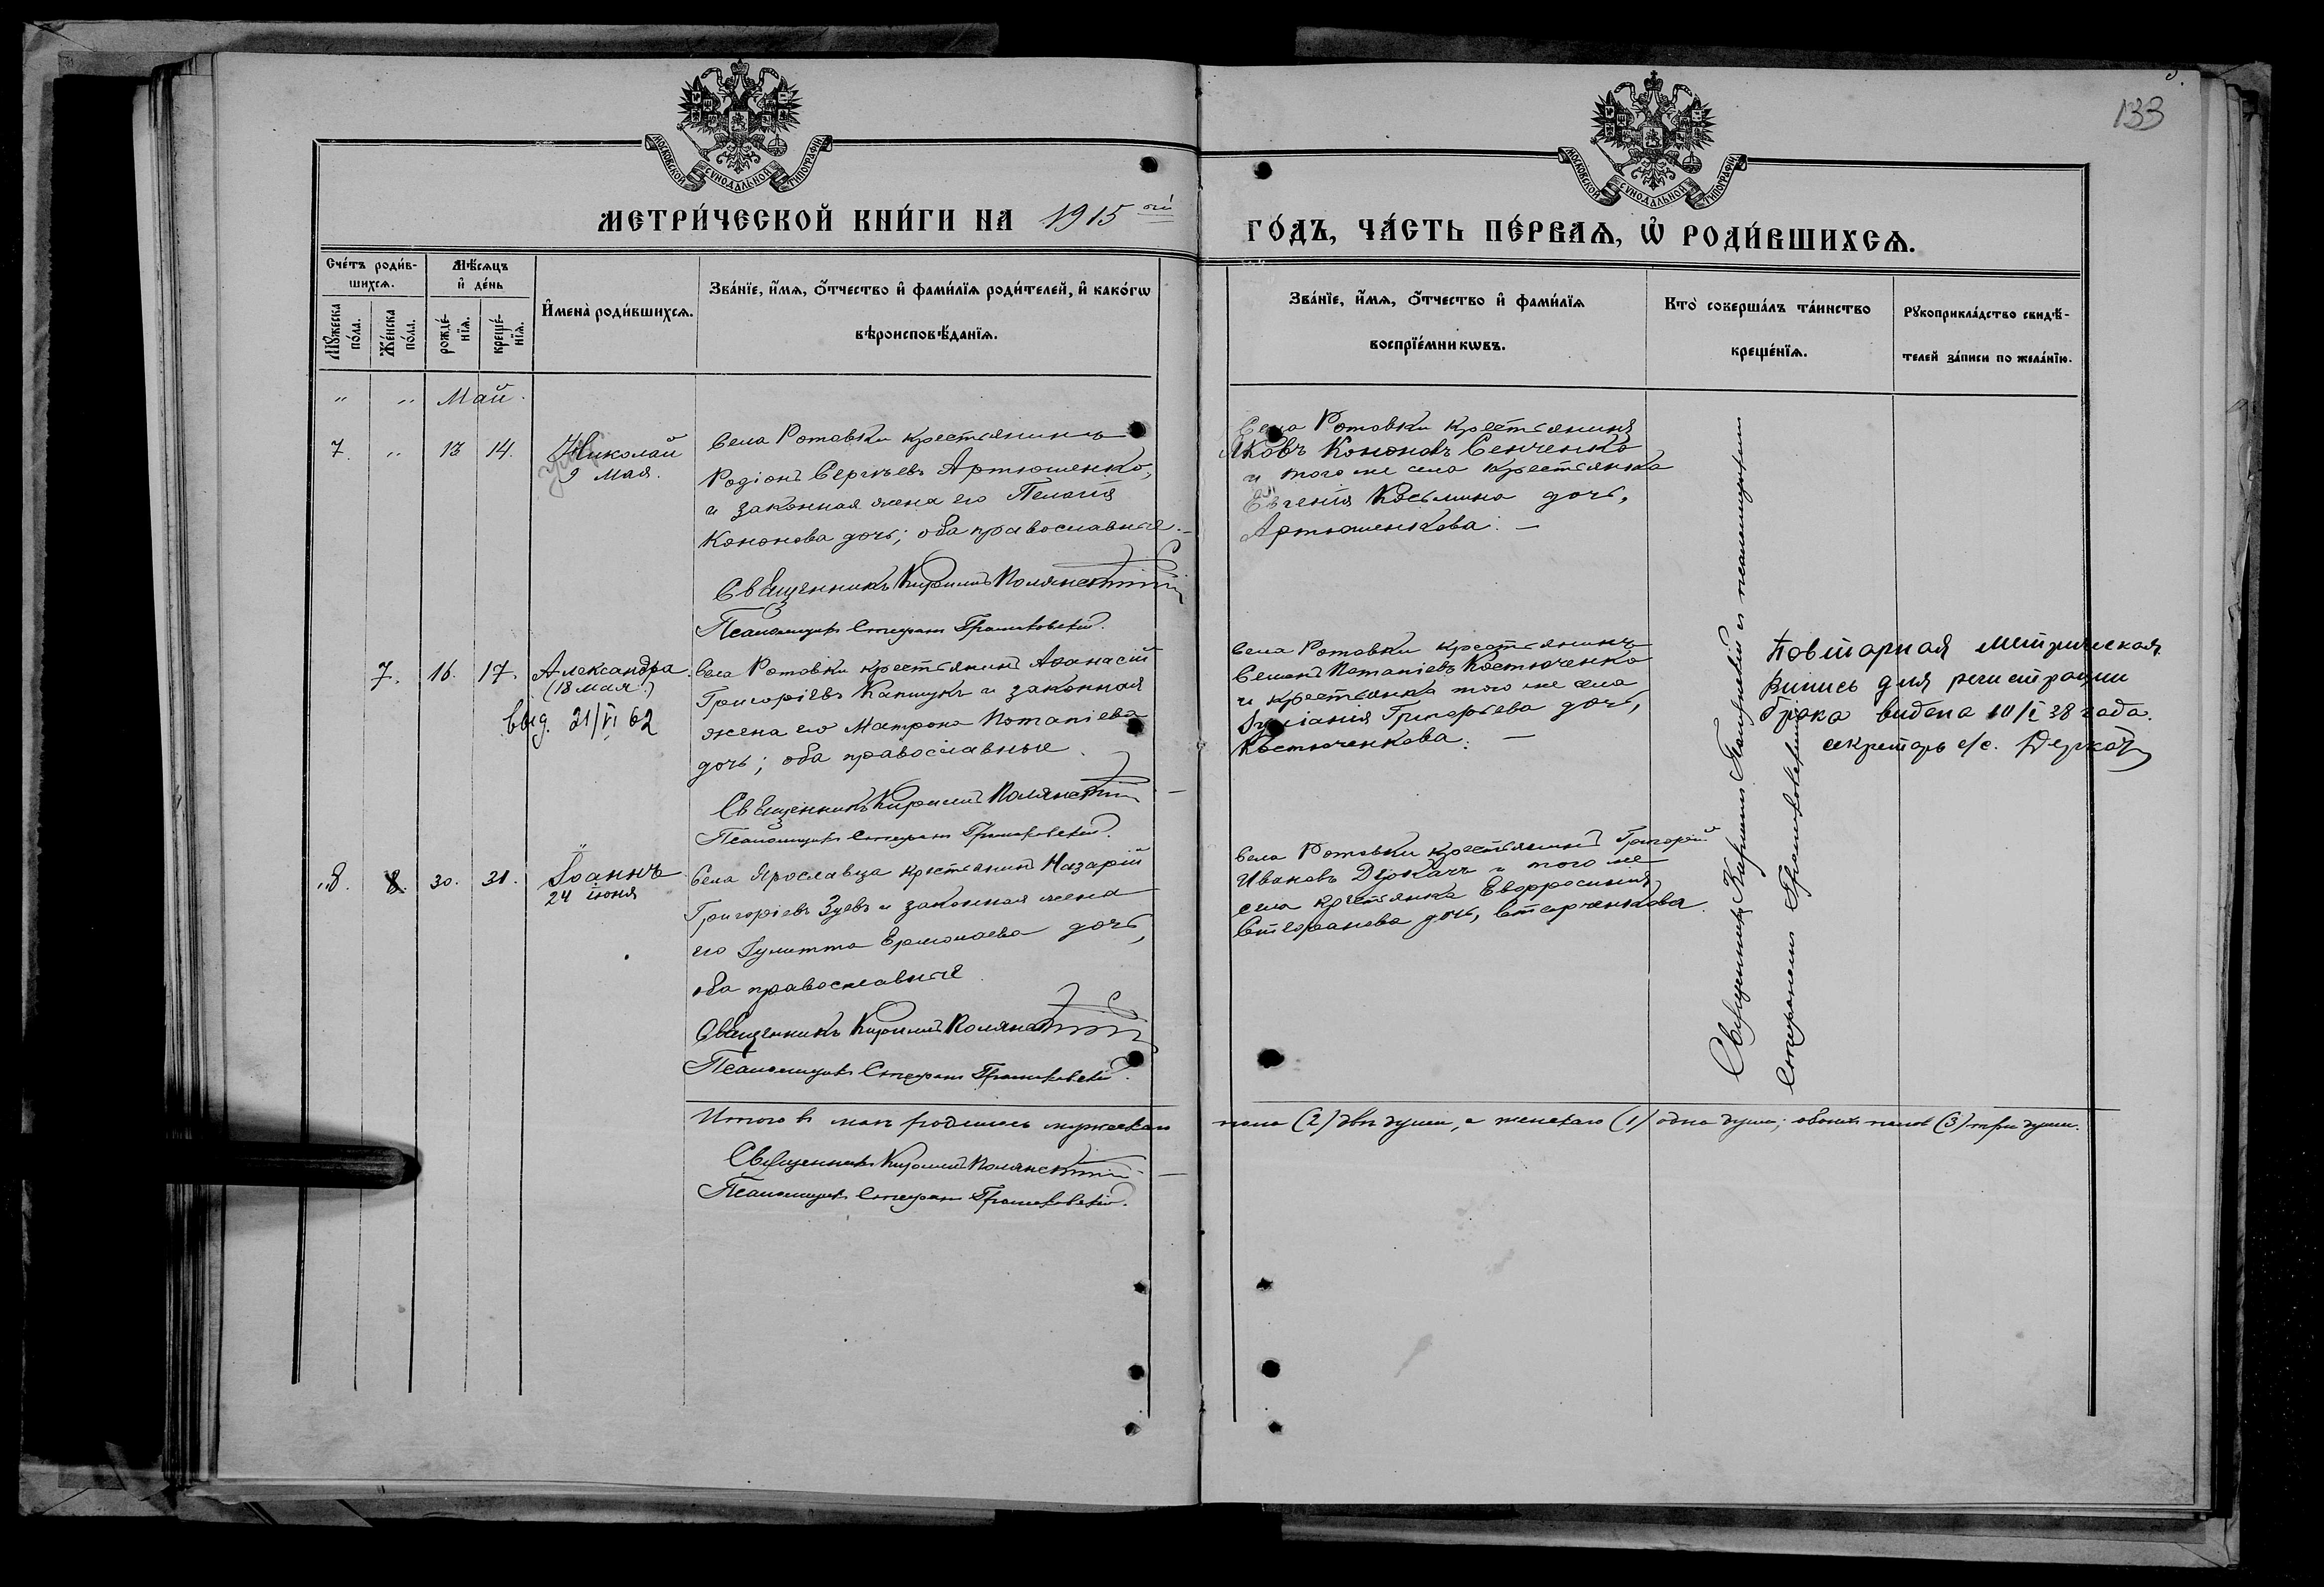 133
МОСКОВСКОЙ СѴНОДАЛЬНОЙ ТИПОГРАФІИ
МОСКОВСКОЙ СѴНОДАЛЬНОЙ ТИПОГРАФІИ
МЕТРИ́ЧЕСКОЙ КНИ́ГИ НА 1915 ой
ГО́ДЪ, ЧА́СТЬ ПЕ́РВАѦ, Ѡ҆ РОДИ́ВШИХСѦ.
Сче́тъ роди́в-
шихсѧ.
Мѣ́сѧцъ
и҆ де́нь
Мꙋ́жеска
по́ла.
Же́нска
по́ла.
рожде́-
нїѧ.
креще́-
нїѧ.
И҆мена̀ роди́вшихсѧ.
Зва́нїе, и҆́мѧ, о҆́тчество и҆ фами́лїѧ роди́телей, и҆ како́гѡ
вѣроисповѣ́данїѧ.
Зва́нїе, и҆́мѧ, о҆́тчество и҆ фами́лїѧ
воспрїе́мникѡвъ.
Кто̀ соверша́лъ та́инство
креще́нїѧ.
Рꙋкоприкла́дство свидѣ́-
телей за́писи по жела́нїю.
" " Май.
7. " 13 14. Николай
9 Мая.
Села Ротовки крестьянинъ
Родіонъ Сергѣевъ Артюшенко,
и законная жена его Пелагія
Кононова дочь; оба православные. —
Священникъ Кириллъ Полянскій
Псаломщикъ Стефанъ Грошковскій.
Села Ротовки крестьянинъ
Яковъ Кононовъ Сенченко
и того же села крестьянка
Евгенія Косьмина дочь,
Артюшенкова. —
7. 16. 17. Александра.
(18 мая)
выд. 21/VI 62
Села Ротовки крестьянинъ Аѳанасій
Григоріевъ Капшукъ и законная
жена его Матрона Потапіева
дочь; оба православные.
Священникъ Кириллъ Полянскій —
Псаломщикъ Стефанъ Грошковскій.
Села Ротовки крестьянинъ
Семенъ Потапіевъ Костюченко
и крестьянка того же села
Григорьева дочь,
Костюченкова. —
Повторная метрическая
выпись для регистрации
брака видена 10/I 38 года.
секретарь с/с. Деркач
8. 8. 30. 31. Іоаннъ
24 іюня
Села Ярославца крестьянинъ Назарій
Григоріевъ Зуевъ и законная жена
его Іулитта Ермолаева дочь,
оба православные.
Священникъ Кириллъ Полянскій
Псаломщикъ Стефанъ Грошковскій.
Села Ротовки крестьянинъ Григорій
Ивановъ Деркачъ и того же
села крестьянка Евфросинія
Стефанова дочь, Старченкова.
Священникъ Кириллъ Полянскій и псаломщикъ
Стефанъ Грошковскій
Итого въ маѣ родилось мужескаго пола (2) двѣ души, а женскаго (1) одна душа; обоихъ половъ (3) три души.
Священникъ Кириллъ Полянскій —
Псаломщикъ Стефанъ Грошковскій.